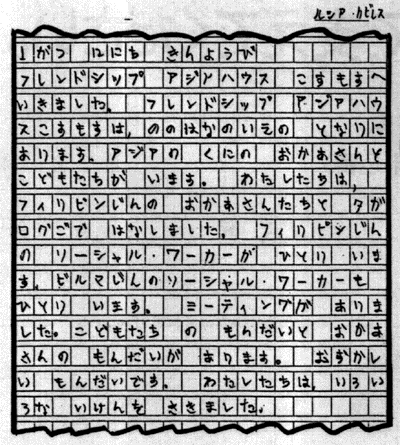 ルシア・カピレス
1がつ 12にち さんようび
フレンドシップ アジアハウス こすもすへ
いきました。 フレンドシップ アジアハウ
スこすもすは、ののはなのいえの となりに
あります。アジアの くにの おかあさんと
こどもたちが います。 わたしたちは、
フィリピンじんの おかあさんたちと タガ
ログごで はなしました。 フィリピンじん
の ソーシャル・ワーカーが ひとり いま
す。ビルマじんのソーシャル・ワーカーも
ひとり います。 ミーティングが ありま
した。こどもたちの もんだいと おかあ
さんの もんだいが あります。 むずかし
い もんだいです。 わたしたちは、いろい
ろな いけんを ききました。